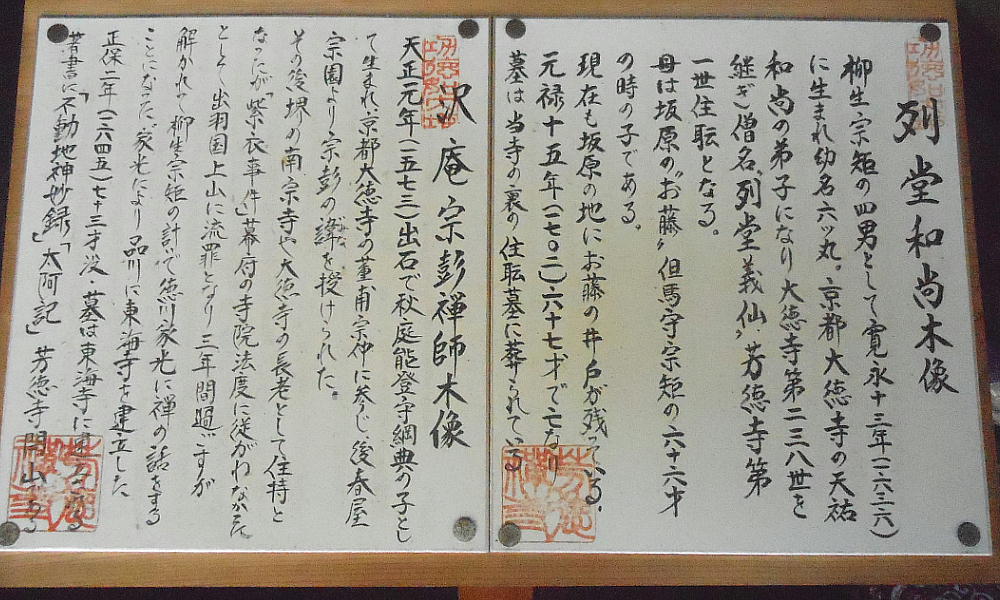 列堂和尚木像
柳生宗矩の四男として寛永十三年(一六三六)
に生まれ幼名六ッ丸。京都大徳寺の天祐
和尚の弟子になり大徳寺第二三八世を
継ぎ僧名〝列堂義仙〟芳徳寺第
一世住耘となる。
母は坂原の〝お藤〟但馬守宗矩の六十六才
の時の子である。
現在も坂原の地にお藤の井戸が残っている。
元禄十五年(一七〇二)六十七才で亡なり
墓は当寺の裏の住耘墓に葬られている
沢庵宗彭禅師木像
天正元年(一五七三)出石で秋庭能登守綱典の子とし
て生まれ、京都大徳寺の董甫宗仲に参じ、後春屋
宗園より宗彭の諱を授けられた。
その後堺の南宗寺や大徳寺の長老として住持と
なったが「紫衣事件」幕府の寺院法度に従がわなかった
として出羽国上山に流罪となり三年間過ごすが
解かれて柳生宗矩の計で徳川家光に禅の話をする
ことになった、家光により品川に東海寺を建立した
正保二年(一六四五)七十三才没・墓は東海寺に
著書に「不動地神妙録」「太阿記」芳徳寺開山